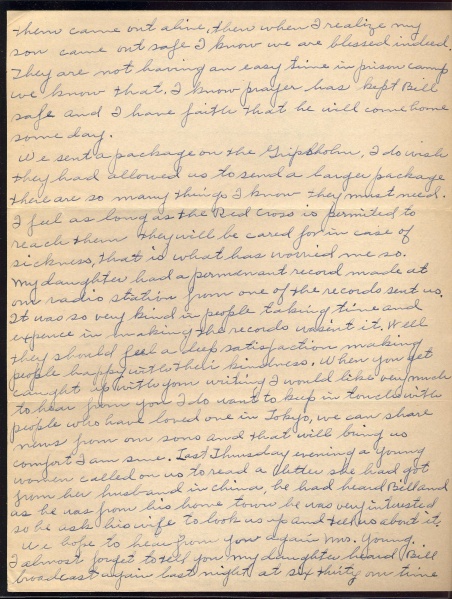 them came out alive, then when I realize my
son came out safe I know we are blessed indeed.
They are not having an easy time in prison camp
we know that. I know prayer has kept Bill
safe and I have faith that he will come home
some day.
We sent a package on the Gripsholm, I do wish
they had allowed us to send a larger package
there are so many things I know they must need.
I feel as long as the Red Cross is permited to
reach them they will be cared for in case of
sickness, that is what has worried me so.
My daughter had a permenant record made at
our radio station from one of the records sent us.
It was so very kind in people taking time and
expence in making the records sent it. Well
they should feel a deep satisfaction making
people happy with their kindness. When you get
caught up with your writing I would like very much
to hear from you I do want to keep in touch with
people who have loved one in Tokyo, we can share
news from our sons and that will bring us
comfort I am sure. Last Thursday evening a young
women called on us to read a letter she had got
from her husband in china, he had heard Bill and
as he was from his home town he was very interested
so he ask his wife to look us up and tell us about it.
We hope to hear from you again Mrs. Young.
I almost forget to tell you my daughter heard Bill
broadcast again last night at six thirty our time